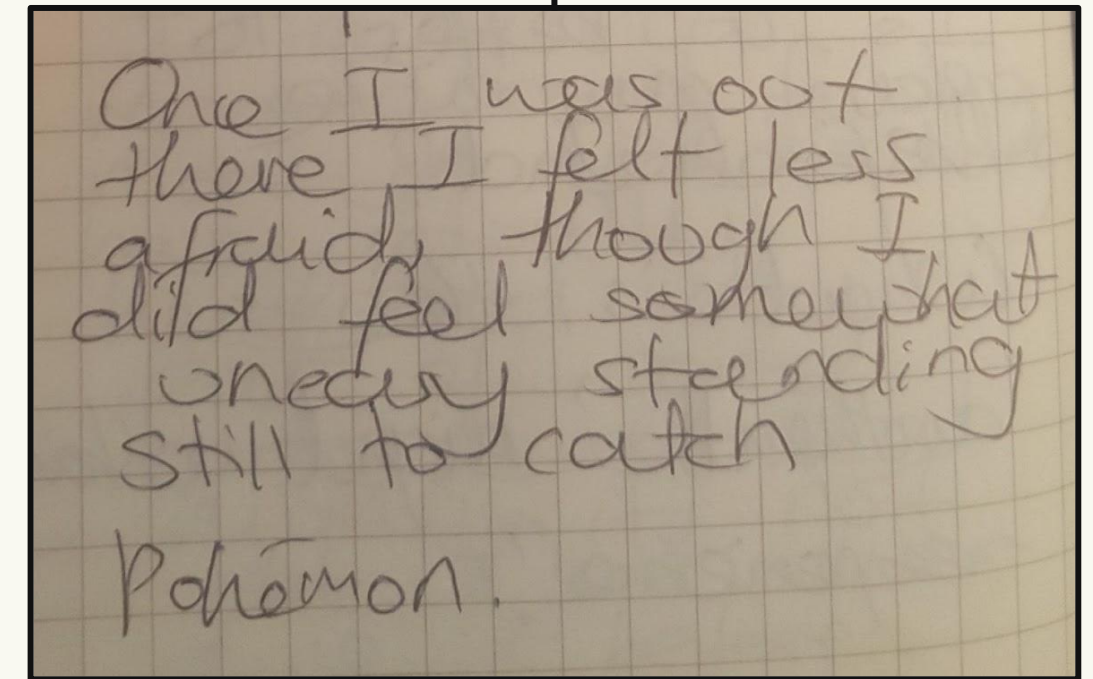 Once I was out
there, I felt less
afraid, though I
did feel somewhat
uneasy standing
still to catch
Pokēmon.